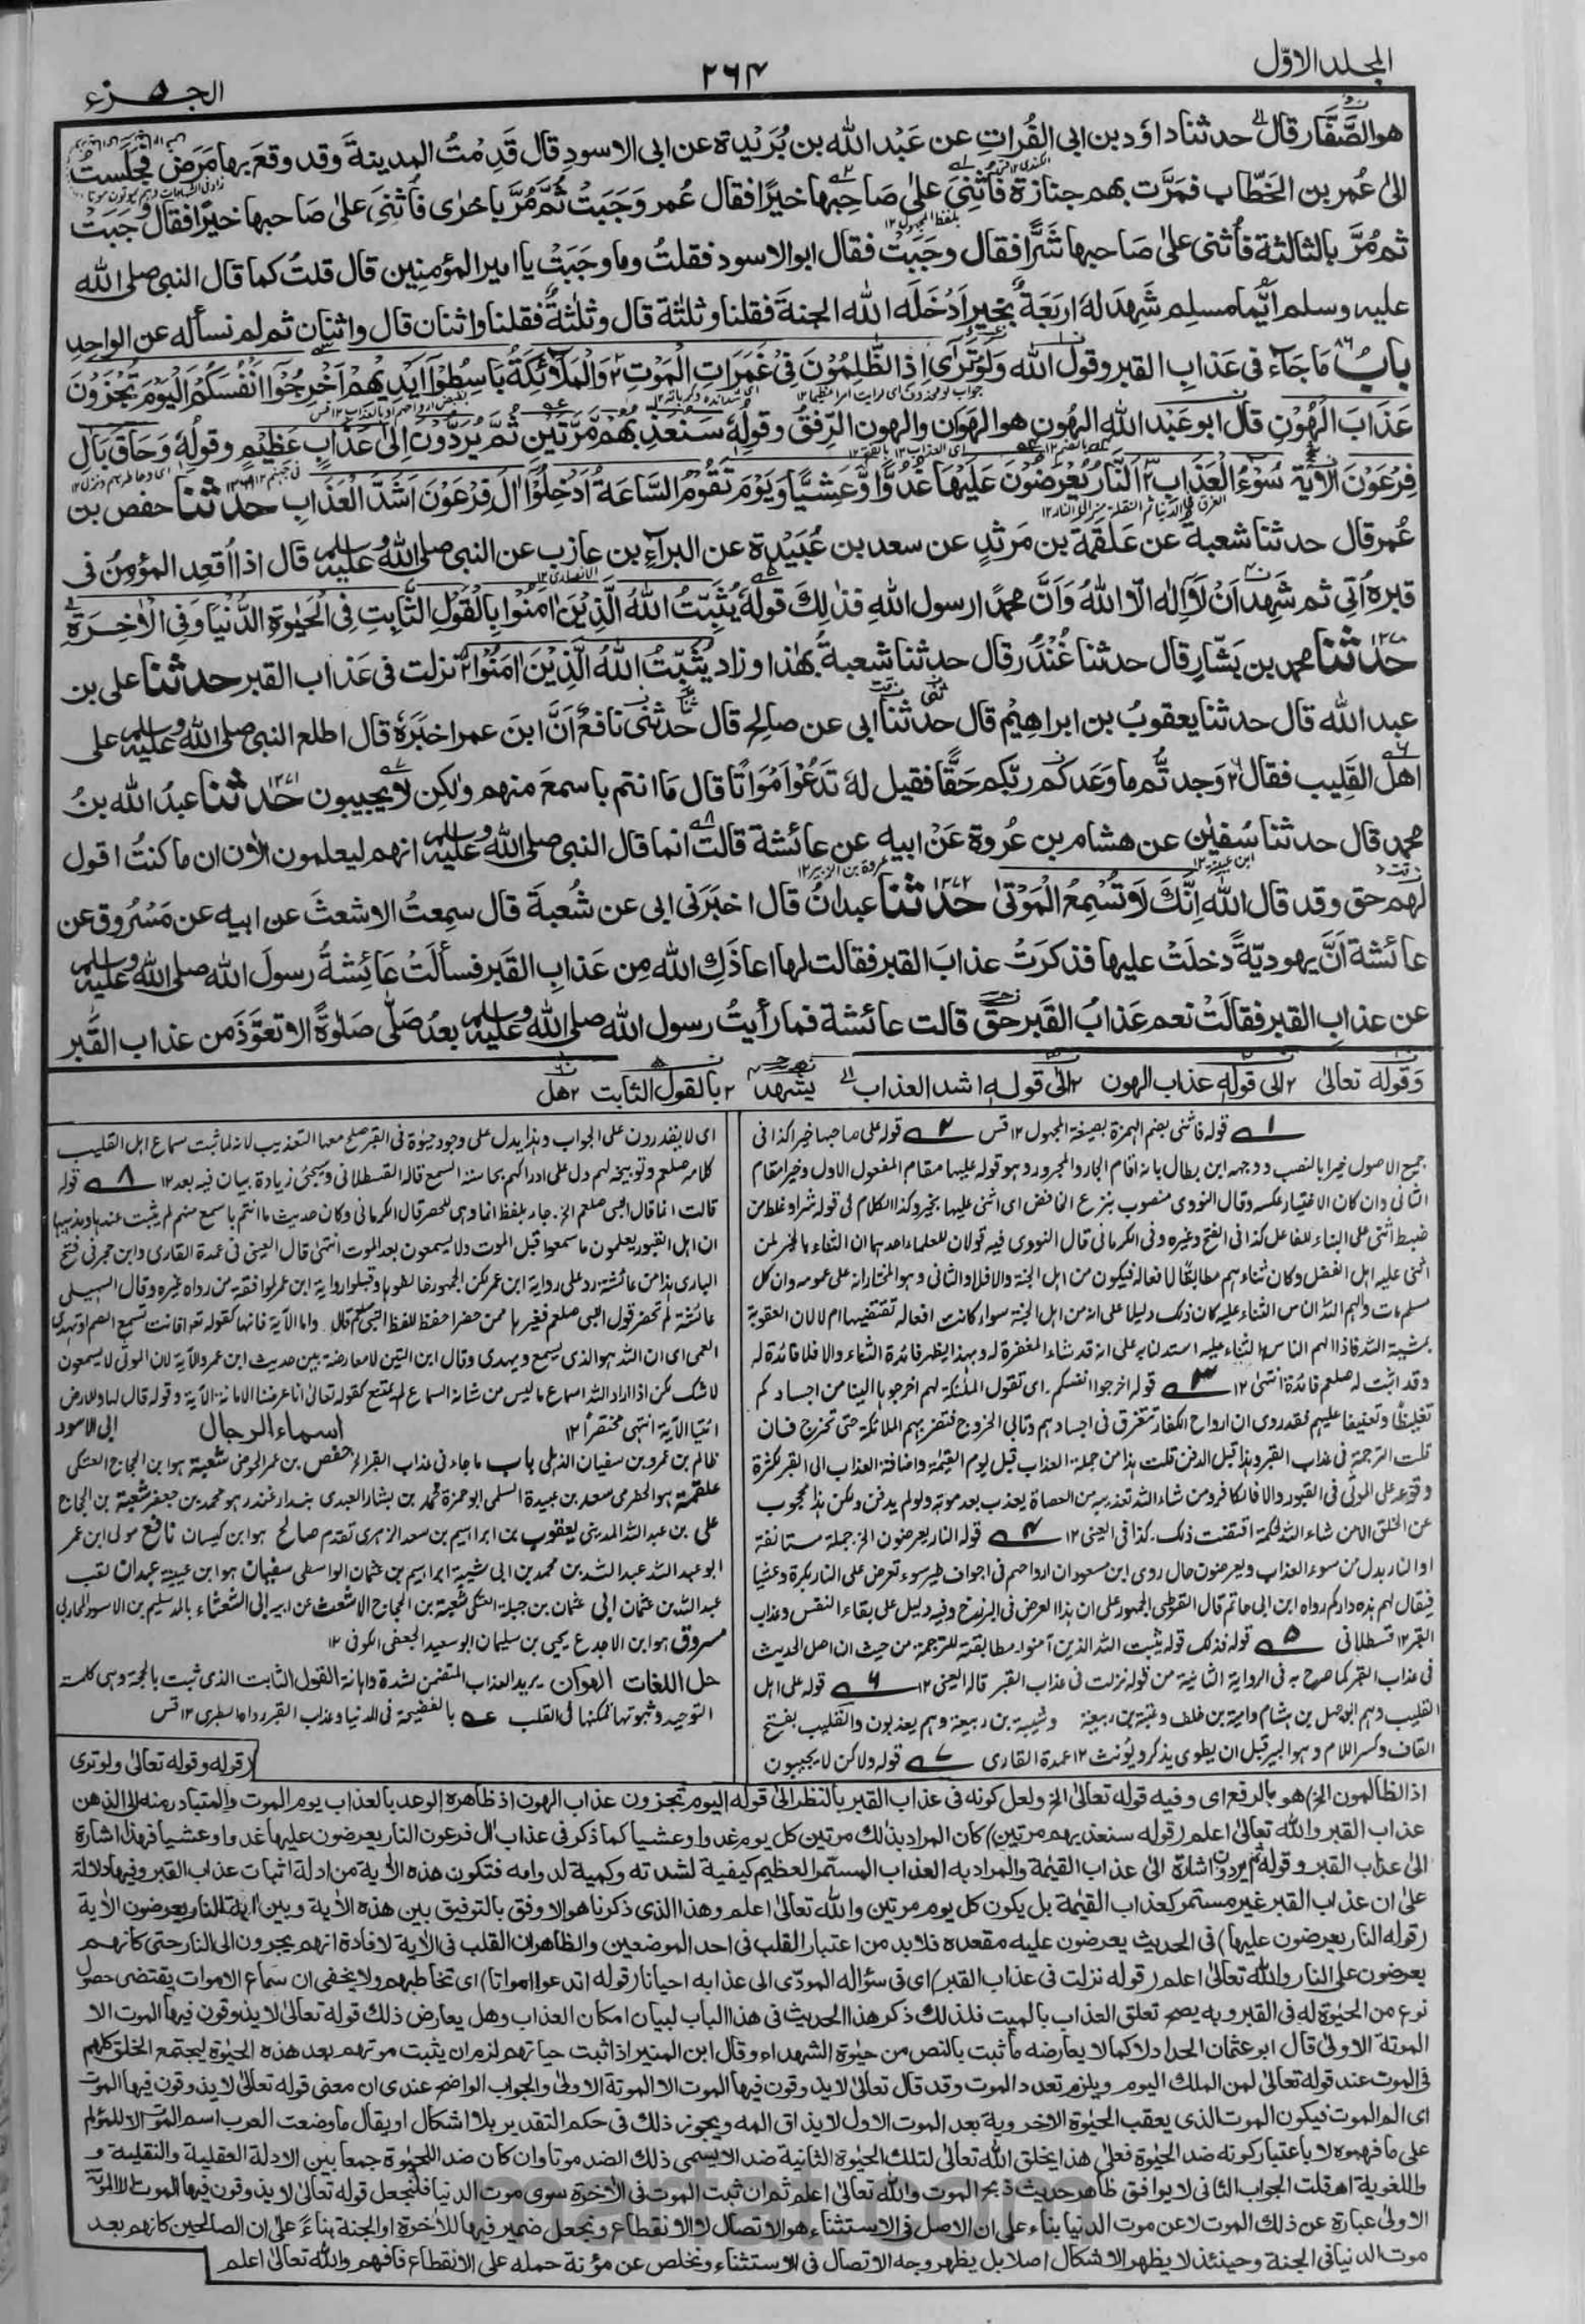 المجلد الاوّل
٢٦٤
الجزء ٥
هو الصَّفَّار قال حدثنا داؤد بن ابى الفُراتِ عن عَبْد الله بن بُرَيْدة عن ابى الاسودِ قال قَدِمْتُ المدينةَ وقد وقعَ بها مَرَض فجَلَستُ
الىٰ عُمر بن الخَطّاب فمَرَّت بهم جنازة فأُثْنِىَ علىٰ صَاحِبها خيرًا فقال عُمر وَجَبَتْ ثمَّ مُرَّ باخرٰى فأُثنِىَ علىٰ صَاحبها خيرًا فقال وجَبَتْ
ثم مُرَّ بالثالثة فأُثنى علىٰ صَاحبها شَرًّا فقال وجَبَتْ فقال ابو الاسود فقلتُ وما وجَبَتْ يا امير المؤمنين قال قلتُ كما قال النبى صلى الله
عليه وسلم اَيُّما مسلمٍ شَهِدَ لهٗ اربَعَةٌ بخيرٍ اَدْخَلَه الله الجنةَ فقلنا وثلٰثة قال وثلٰثةٌ فقلنا واثنان قال واثنان ثم لم نسأله عن الواحدِ
بابُ مَا جَاءَ فى عَذابِ القبر وقول الله وَلَوْ تَرٰى اِذِ الظّٰلِمُوْنَ فِىْ غَمَرَاتِ الْمَوْتِ وَالْمَلٰٓئِكَةُ بَاسِطُوْٓا اَيْدِيْهِمْ اَخْرِجُوْٓا اَنْفُسَكُمْ اَلْيَوْمَ تُجْزَوْنَ
عَذَابَ الْهُوْنِ قال ابو عَبْد الله الهُون هو الهَوَان والهون الرِّفقُ وقولِهٖ سَنُعَذِّبُهُمْ مَّرَّتَيْنِ ثُمَّ يُرَدُّوْنَ اِلٰى عَذَابٍ عَظِيْمٍ وقولِهٖ وَحَاقَ بِاٰلِ
فِرْعَوْنَ الْاٰيَةَ سُوْٓءُ الْعَذَابِ اَلنَّارُ يُعْرَضُوْنَ عَلَيْهَا غُدُوًّا وَّعَشِيًّا وَيَوْمَ تَقُوْمُ السَّاعَةُ اَدْخِلُوْٓا اٰلَ فِرْعَوْنَ اَشَدَّ الْعَذَابِ حدثنا حفص بن
عُمر قال حدثنا شعبة عن عَلقَمة بن مَرثدٍ عن سعد بن عُبَيْدة عن البراءِ بن عازب عن النبى صلى الله عليه وسلم قال اذا اُقعِد المؤمِنُ فى
قبره اُتِىَ ثم شَهِد اَنْ لَّا اِلٰه الّا اللهُ وَاَنَّ محمدًا رسول اللهِ فذٰلك قولهٗ يُثَبِّتُ اللهُ الَّذِيْنَ اٰمَنُوْا بِالْقَوْلِ الثَّابِتِ فِى الْحَيٰوةِ الدُّنْيَا وَفِى الْاٰخِرَةِ
حدثنا محمد بن بَشّارٍ قال حدثنا غُنْدُر قال حدثنا شعبةُ بهٰذا وزاد يُثَبِّتُ اللهُ الَّذِيْنَ اٰمَنُوْا نزلت فى عَذاب القبر حدثنا على بن
عبد الله قال حدثنا يعقوبُ بن ابراهيْم قال حدثنا ابى عن صالح قال حدَّثنى نافعٌ اَنَّ ابنَ عمر اخبَرَهٗ قال اطلع النبى صلى الله عليه وسلم على
اهل القَلِيب فقال وَجدتُّم ما وَعَدكم ربّكم حَقًّا فقيل لهٗ تَدْعُوْا اَمْوَاتًا قال مَا انتم باسمعَ منهم ولٰكِن لا يجيبون حدثنا عبدُ الله بنُ
محمد قال حدثنا سُفيٰن عن هشام بن عُروة عَنْ ابيه عن عائشة قالت انما قال النبى صلى الله عليه وسلم انهم ليعلمون الاٰن ان ما كنتُ اقول
لهم حق وقد قال الله اِنَّكَ لَا تُسْمِعُ الْمَوْتٰى حدثنا عبدانُ قال اخبَرَنى ابى عن شُعبةَ قال سمِعتُ الاشعثَ عن ابيه عن مَسْروق عن
عائشة اَنَّ يهوديّةً دخلَتْ عليها فذكرَتْ عذابَ القبر فقالت لها اعاذَكِ الله مِن عَذابِ القَبر فسألَتْ عَائِشةُ رسولَ الله صلى الله عليه وسلم
عن عذابِ القبر فقالَتْ نعم عَذابُ القَبر حَقٌّ قالت عائشة فما رأيتُ رسول الله صلى الله عليه وسلم بعدُ صَلّٰى صَلٰوةً الا تعوَّذ من عذاب القَبر
وَقوله تعالىٰ الى قوله عذاب الهون الىٰ قوله اشد العذاب يشهد بالقول الثابت هل
١ قوله فاثنى بضم الهمزة بصيغة المجهول ١٢ قس ٢ قوله على صاحبها خيرا كذا فى
جميع الاصول خيرا بالنصب ووجهه ابن بطال بانه اقام الجار والمجرور وهو قوله عليها مقام المفعول الاول وخيرا مقام
الثانى وان كان الاختيار عكسه وقال النووى منصوب بنزع الخافض اى اثنى عليها بخير وكذا الكلام فى قوله شرا وغلط من
ضبط اثنى على البناء للفاعل كذا فى الفتح وغيره وفى الكرمانى قال النووى فيه قولان للعلماء احدهما ان الثناء بالخير لمن
اثنى عليه اهل الفضل وكان ثناءهم مطابقا لافعاله فيكون من اهل الجنة والا فلا والثانى وهو المختار انه على عمومه وان كل
مسلم مات والهم الله الناس الثناء عليه كان ذلك دليلا على انه من اهل الجنة سواء كانت افعاله تقتضيها ام لا لان العقوبة
بمشية الله فاذا الهم الناس الثناء عليه استدللنا به على انه قد شاء المغفرة له وبهذا يظهر فائدة الثناء والا فلا فائدة له
وقد اثبت له صلعم فائدة انتهىٰ ١٢ ٣ قوله اخرجوا انفسكم اى تقول الملٰئكة لهم اخرجوها الينا من اجسادكم
تغليظا وتعنيفا عليهم فقد روى ان ارواح الكفار تتفرق فى اجسادهم وتابى الخروج فتضربهم الملائكة حتى تخرج فان
قلت الترجمة فى عذاب القبر وهذا قبل الدفن قلت هذا من جملة العذاب قبل يوم القيٰمة واضافة العذاب الى القبر لكثرة
وقوعه على الموتى فى القبور والا فالكافر ومن شاء الله تعذيبه من العصاة يعذب بعد موته ولو لم يدفن ولكن هذا محجوب
عن الخلق الا من شاء الله لحكمة اقتضت ذلك كذا فى العينى ١٢ ٤ قوله النار يعرضون الخ جملة مستانفة
او النار بدل من سوء العذاب ويعرضون حال روى ابن مسعود ان ارواحهم فى اجواف طير سود تعرض على النار بكرة وعشيا
فيقال لهم هذه داركم رواه ابن ابى حاتم قال القرطبى الجمهور على ان هذا العرض فى البرزخ وفيه دليل على بقاء النفس وعذاب
القبر ١٢ قسطلانى ٥ قوله فذلك قوله يثبت الله الذين آمنوا مطابقته للترجمة من حيث ان اصل الحديث
فى عذاب القبر كما صرح به فى الرواية الثانية من قوله نزلت فى عذاب القبر قاله العينى ١٢ ٦ قوله على اهل
القليب وهم ابو جهل بن هشام وامية بن خلف وعتبة بن ربيعة وشيبة بن ربيعة وهم يعذبون والقليب بفتح
القاف وكسر اللام وهو البير قبل ان يطوى يذكر ويؤنث ١٢ عمدة القارى ٧ قوله ولاكن لا يجيبون
اى لا يقدرون على الجواب وهذا يدل على وجود حيٰوة فى القبر يصلح معها التعذيب لانه لما ثبت سماع اهل القليب
كلامه صلعم وتوبيخه لهم دل على ادراكهم بحاسة السمع قاله القسطلانى وسيجئ زيادة بيان فيه بعد ١٢ ٨ قوله
قالت انما قال النبى صلعم الخ جاء بلفظ انما وهى للحصر قال الكرمانى وكان حديث ما انتم باسمع منهم لم يثبت عندها ومذهبها
ان اهل القبور يعلمون ما سمعوا قبل الموت ولا يسمعون بعد الموت انتهىٰ قال العينى فى عمدة القارى وابن حجر فى فتح
البارى هذا من عائشة رد على رواية ابن عمر لكن الجمهور خالفوها وقبلوا رواية ابن عمر لموافقة من رواه غيره وقال السهيلى
عائشة لم تحضر قول النبى صلعم فغيرها ممن حضر احفظ للفظ النبى صلعم قال واما الآية فانها كقوله تعـ افانت تسمع الصم او تهدى
العمى اى ان الله هو الذى يسمع ويهدى وقال ابن التين لا معارضة بين حديث ابن عمر والآية لان الموتى لا يسمعون
لا شك لكن اذا اراد الله اسماع ما ليس من شانه السماع لم يمتنع كقوله تعالىٰ انا عرضنا الامانة الآية وقوله قال لها وللارض
ائتيا الآية انتهى مختصرا ١٢ اسماء الرجال ابى الاسود
ظالم بن عمرو بن سفيان الدئلى باب ما جاء فى عذاب القبر الخ حفص بن عمر الحوضى شعبة هو ابن الحجاج العتكى
علقمة هو الحضرمى سعد بن عبيدة السلمى ابو حمزة محمد بن بشار العبدى بندار غندر هو محمد بن جعفر شعبة بن الحجاج
على بن عبد الله المدينى يعقوب بن ابراهيم بن سعد الزهرى تقدم صالح هو ابن كيسان نافع مولى ابن عمر
ابو عبد الله عبد الله بن محمد بن ابى شيبة ابراهيم بن عثمان الواسطى سفيان هو ابن عيينة عبدان لقب
عبد الله بن عثمان ابى عثمان بن جبلة العتكى شعبة بن الحجاج الاشعث عن ابيه ابى الشعثاء بالمد سليم بن الاسود المحاربى
مسروق هو ابن الاجدع يحيى بن سليمان ابو سعيد الجعفى الكوفى ١٢
حل اللغات الهوان يريد العذاب المتضمن لشدة واهانة القول الثابت الذى ثبت بالحجة وهى كلمة
التوحيد وثبوتها تمكنها فى القلب بالفضيحة فى الدنيا وعذاب القبر رواه الطبرى ١٢ قس
(قوله وقوله تعالىٰ ولو ترى
اذ الظالمون الخ) هو بالرفع اى وفيه قوله تعالىٰ الخ ولعل كونه فى عذاب القبر بالنظر الىٰ قوله اليوم تجزون عذاب الهون اذ ظاهره الوعد بالعذاب يوم الموت والمتبادر منه الى الذهن
عذاب القبر والله تعالىٰ اعلم (قوله سنعذبهم مرتين) كان المراد بذلك مرتين كل يوم غدوا وعشيا كما ذكر فى عذاب اٰل فرعون النار يعرضون عليها غدوا وعشيا فهذا اشارة
الىٰ عذاب القبر وقوله ثم يردون اشارة الىٰ عذاب القيٰمة والمراد به العذاب المستمر العظيم كيفية لشدته وكمية لدوامه فتكون هذه الاٰية من ادلة اثبات عذاب القبر وفيها دلالة
علىٰ ان عذاب القبر غير مستمر كعذاب القيٰمة بل يكون كل يوم مرتين والله تعالىٰ اعلم وهذا الذى ذكرنا هو الاوفق بالتوفيق بين هذه الاٰية وبين اٰية النار يعرضون الاٰية
(قوله النار يعرضون عليها) فى الحديث يعرضون عليه مقعده فلا بد من اعتبار القلب فى احد الموضعين والظاهر ان القلب فى الاٰية لافادة انهم يجرون الى النار حتى كانهم
يعرضون على النار والله تعالىٰ اعلم (قوله نزلت فى عذاب القبر) اى فى سؤاله المودّى الى عذابه احيانا (قوله اتدعوا امواتا) اى تخاطبهم ولا يخفى ان سماع الاموات يقتضى حصول
نوع من الحيٰوة له فى القبر وبه يصح تعلق العذاب بالميت فلذلك ذكر هذا الحديث فى هذا الباب لبيان امكان العذاب وهل يعارض ذلك قوله تعالىٰ لا يذوقون فيها الموت الا
الموتة الاولىٰ قال ابو عثمان الحداد لا كما لا يعارضه ما ثبت بالنص من حيٰوة الشهداء وقال ابن المنير اذا ثبت حياتهم لزم ان يثبت موتهم بعد هذه الحيٰوة ليجتمع الخلق كلهم
فى الموت عند قوله تعالىٰ لمن الملك اليوم ويلزم تعدد الموت وقد قال تعالىٰ لا يذوقون فيها الموت الا الموتة الاولىٰ والجواب الواضح عندى ان معنى قوله تعالىٰ لا يذوقون فيها الموت
اى الم الموت فيكون الموت الذى يعقب الحيٰوة الاخروية بعد الموت الاول لا يذاق المه ويجوز ذلك فى حكم التقدير بلا اشكال او يقال ما وضعت العرب اسم الموت الا للمؤلم
على ما فهموه لا باعتبار كونه ضد الحيٰوة فعلىٰ هذا يخلق الله تعالىٰ لتلك الحيٰوة الثانية ضدا لا يسمى ذلك الضد موتا وان كان ضد الحيٰوة جمعا بين الادلة العقلية والنقلية و
واللغوية اهـ قلت الجواب الثانى لا يوافق ظاهر حديث ذبح الموت والله تعالىٰ اعلم ثم ان ثبت الموت فى الاٰخرة سوى موت الدنيا فليجعل قوله تعالىٰ لا يذوقون فيها الموت الا الموتة
الاولىٰ عبارة عن ذلك الموت لا عن موت الدنيا بناء على ان الاصل فى الاستثناء هو الاتصال لا الانقطاع ونجعل ضمير فيها للاٰخرة او الجنة بناءً على ان الصالحين كانهم بعد
موت الدنيا فى الجنة وحينئذ لا يظهر الاشكال اصلا بل يظهر وجه الاتصال فى الاستثناء ونخلص عن مؤنة حمله على الانقطاع فافهم والله تعالىٰ اعلم